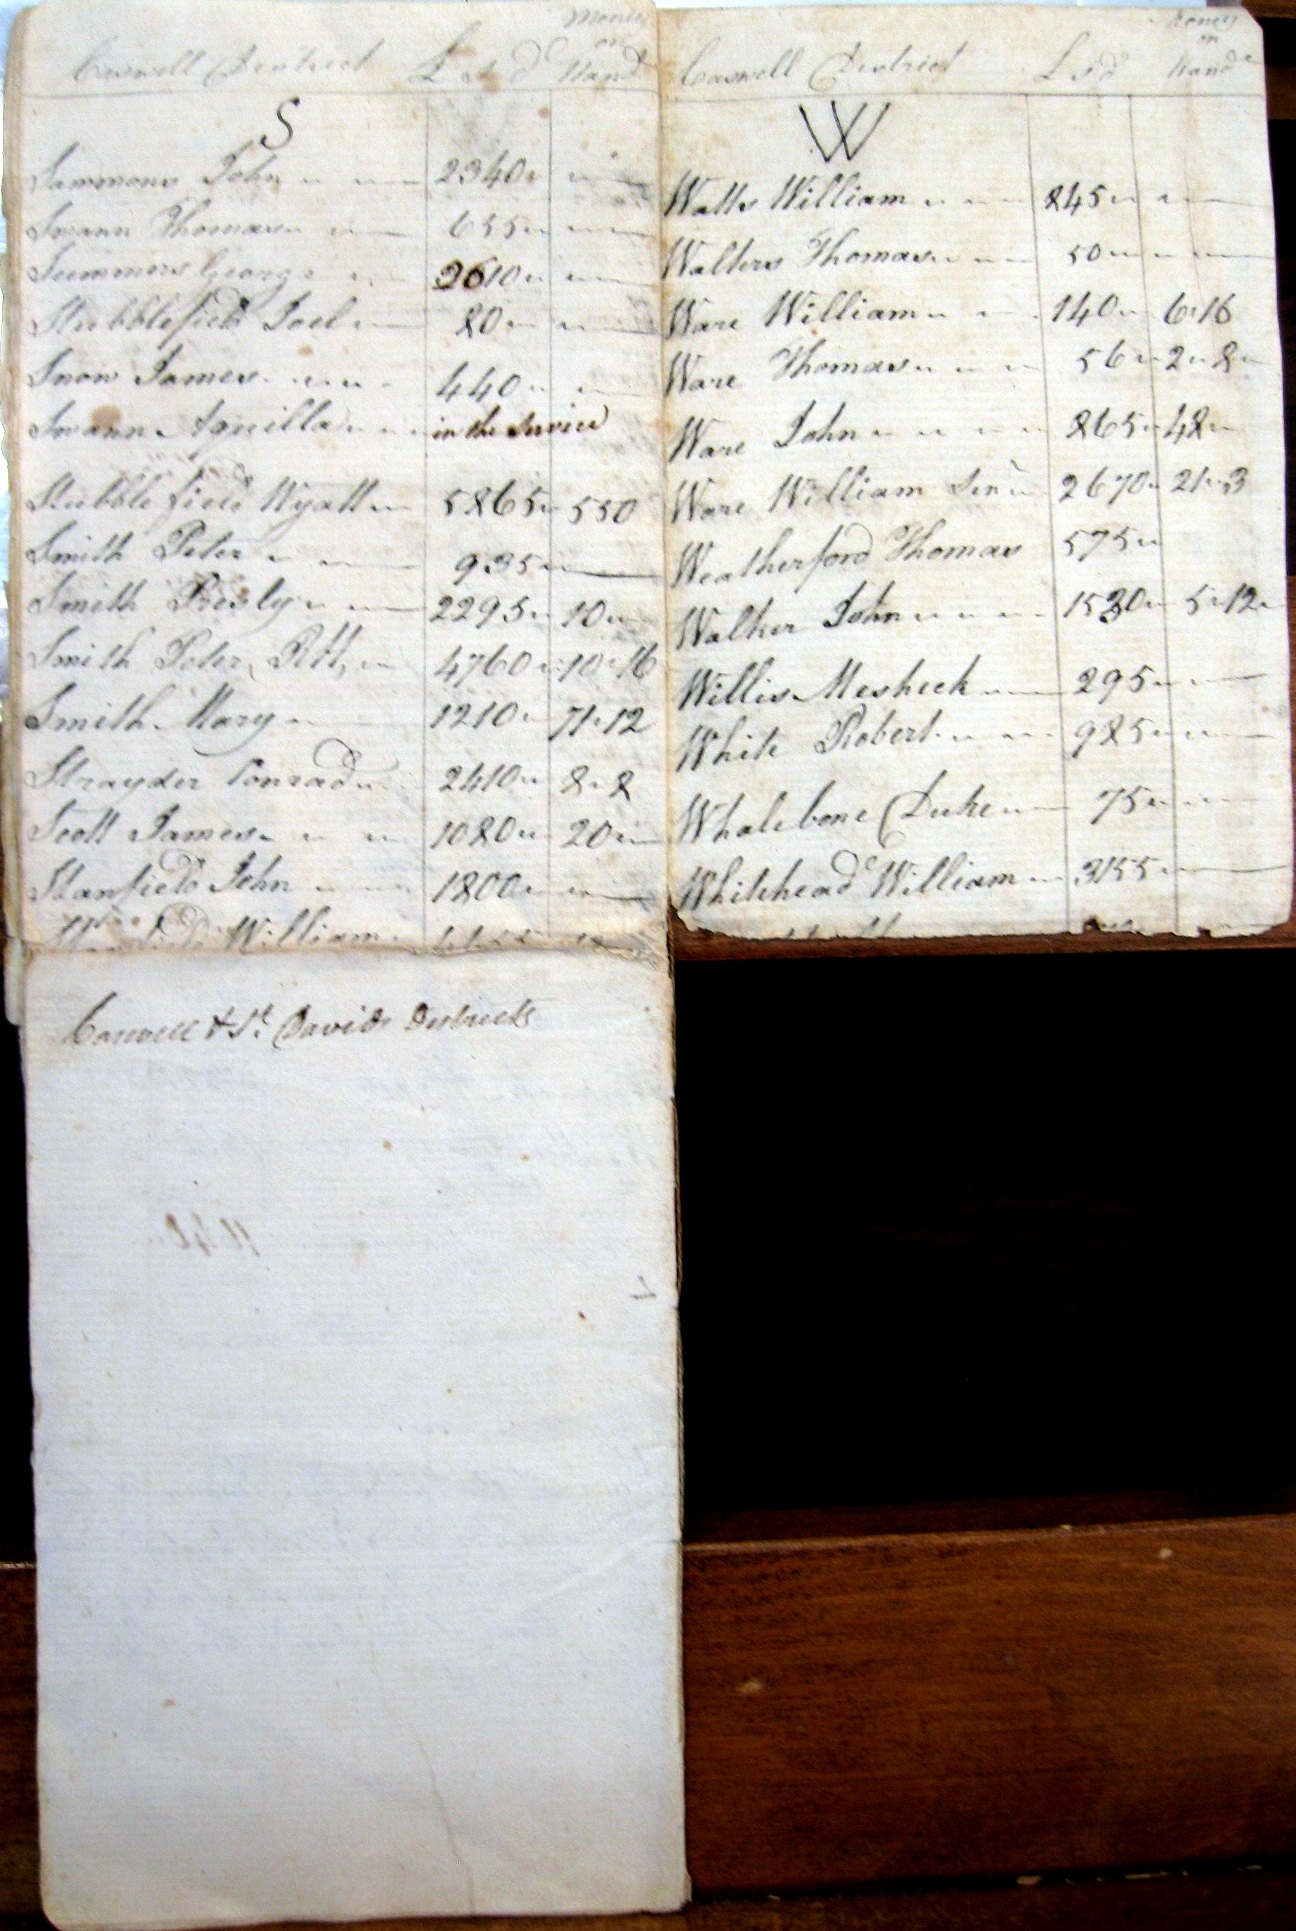 Caswell District L s d Money on Hand
S
Sammons John 2340
Swann Thomas 655
Summers George 2610
Stubblefield Joel 80
Snow James 440
Swann Aquilla in the Service
Stubblefield Wyatt 5865 550
Smith Peter 935
Smith Presly 2295 10
Smith Peter, 4760 10 16
Smith Mary 1210 71 12
Strayder Conrad 2410 8 8
Scott James 1080 20
Stanfield John 1800
William
Caswell District L s d Money on Hand
W
Watts William 845
Walters Thomas 50
Ware William 140 6 16
Ware Thomas 56 2 8
Ware John 865 48
Ware William Senr 2670 21 3
Weatherford Thomas 575
Walker John 1530 5 12
Willis Mesheck 295
White Robert 985
Whalebone Duke 75
Whitehead William 3155
Caswell & St. Davids Districts